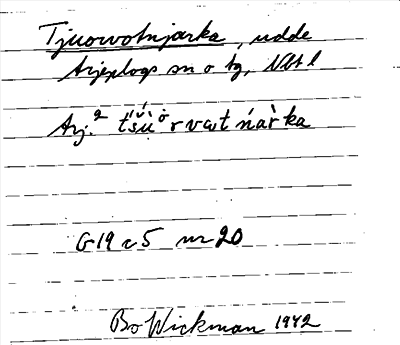 Tjuorvotnjarka, udde
Arjeplogs sn o tg, Nbt l
Arj.² t́śŭ̀ȯrvɑtńar̀ka
G19 c5 nr 20
Bo Wickman 1942